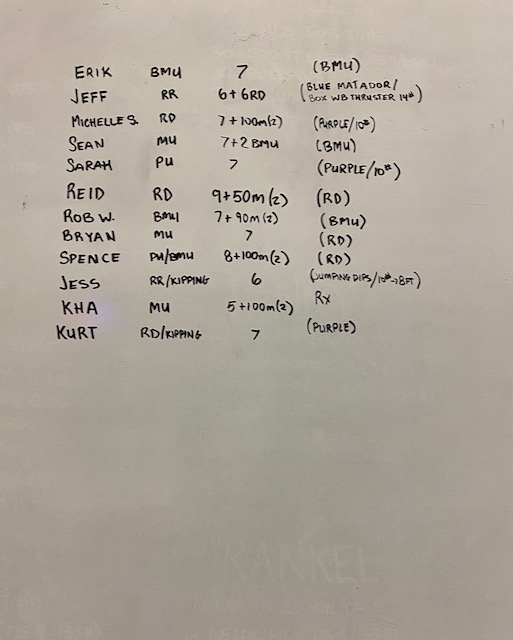 ERIK BMU 7 (BMU)
JEFF RR 6+6RD (BLUE MATADOR/ BOX WB THRUSTER 14#)
MICHELLE S. RD 7+100m(2) (PURPLE/10#)
SEAN MU 7+2 BMU (BMU)
SARAH PU 7 (PURPLE/10#)
REID RD 9+50m(2) (RD)
ROB W. BMU 7+90m(2) (BMU)
BRYAN MU 7 (RD)
SPENCE PU/BMU 8+100m(2) (RD)
JESS RR/KIPPING 6 (JUMPING DIPS/10#→8FT)
KHA MU 5+100m(2) Rx
KURT RD/KIPPING 7 (PURPLE)
"RANKEL